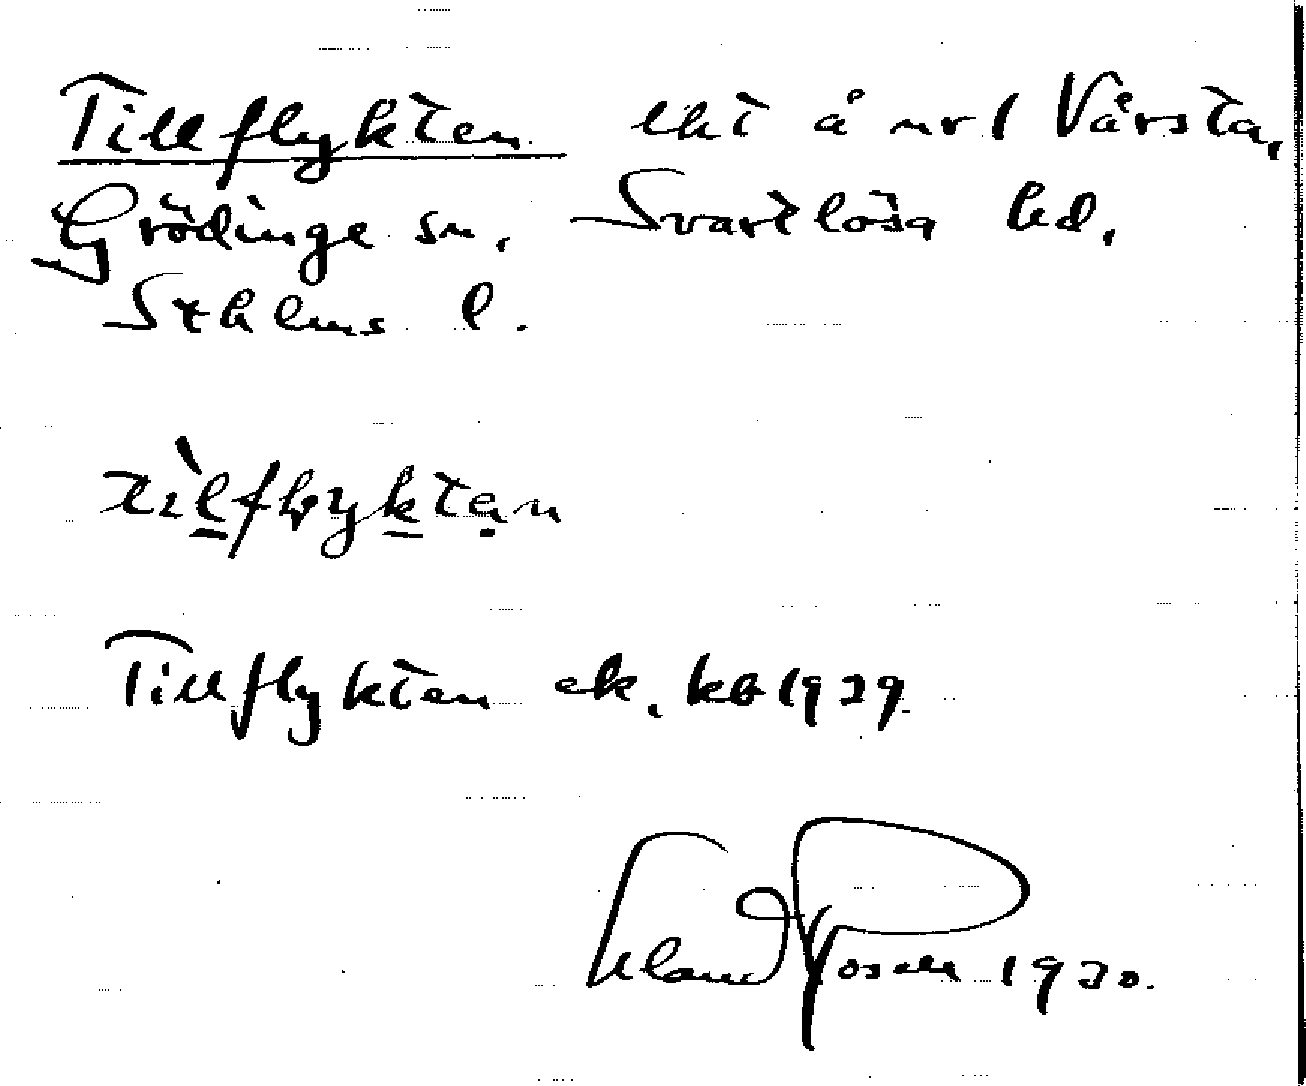 Tillflykten lht å nr 1 Vårsta,
Grödinge sn. Svartlösa hd,
Sthlms l.
tìlflyktən
Tillflykten ek. kb 1929
Erland Rosell 1930.